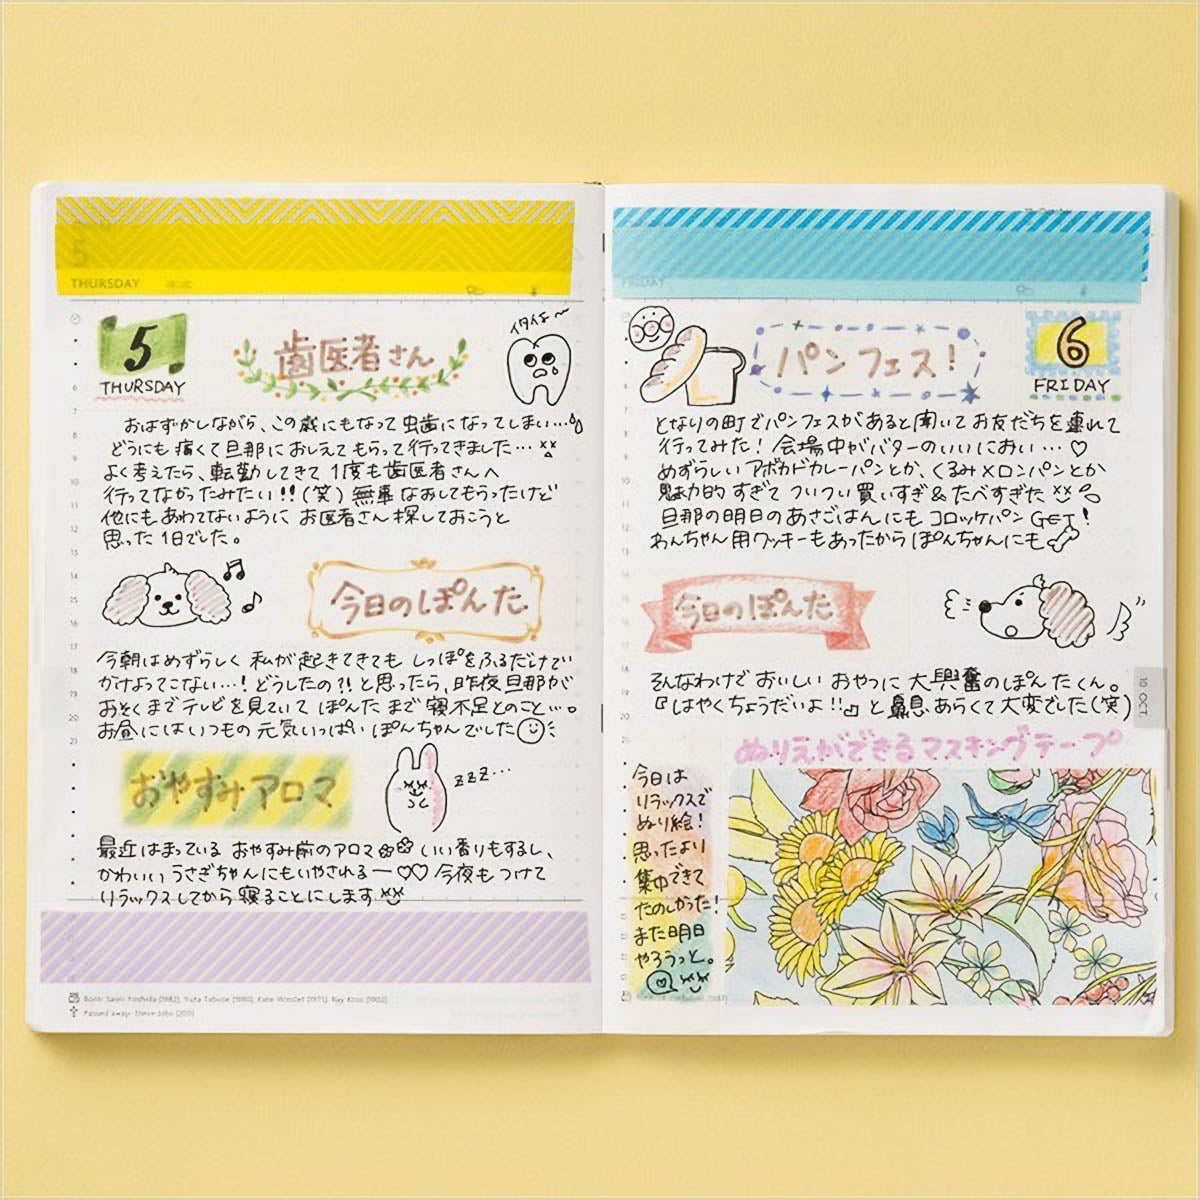 5
THURSDAY
5
THURSDAY
歯医者さん
イタイよ〜
おはずかしながら、この歳にもなって虫歯になってしまい…
どうにも痛くて旦那におしえてもらって行ってきました…
よく考えたら、転勤してきて1度も歯医者さんへ
行ってなかったみたい!!(笑)無事なおしてもらったけど
他にもあわてないようにお医者さん探しておこうと
思った1日でした。
今日のぽんた
今朝はめずらしく私が起きてきてもしっぽをふるだけで
かけよってこない…!どうしたの?!と思ったら、昨夜旦那が
おそくまでテレビを見ていてぽんたまで寝不足とのこと…。
お昼にはいつもの元気いっぱいぽんちゃんでした
おやすみアロマ
zzz…
最近はまっているおやすみ前のアロマ いい香りもするし、
かわいいうさぎちゃんにもいやされるー♡♡今夜もつけて
リラックスしてから寝ることにします
Born: Sachi Yoshida (1982), Yuta Tabuse (1980), Kate Winslet (1975), Ray Kroc (1902)
Passed away: Steve Jobs (2011)
FRIDAY
パンフェス!
6
FRIDAY
となりの町でパンフェスがあると聞いてお友だちを連れて
行ってみた!会場中がバターのいいにおい…♡
めずらしいアボカドカレーパンとか、くるみ×ロンパンとか
魅力的すぎてついつい買いすぎ&たべすぎた
旦那の明日のあさごはんにもコロッケパンGET!
わんちゃん用クッキーもあったからぽんちゃんにも
今日のぽんた
そんなわけでおいしいおやつに大興奮のぽんたくん。
『はやくちょうだいよ!!』と鼻息あらくて大変でした(笑)
10 OCT
ぬりえができるマスキングテープ
今日は
リラックスで
ぬり絵!
思ったより
集中できて
たのしかった!
また明日
やろうっと。